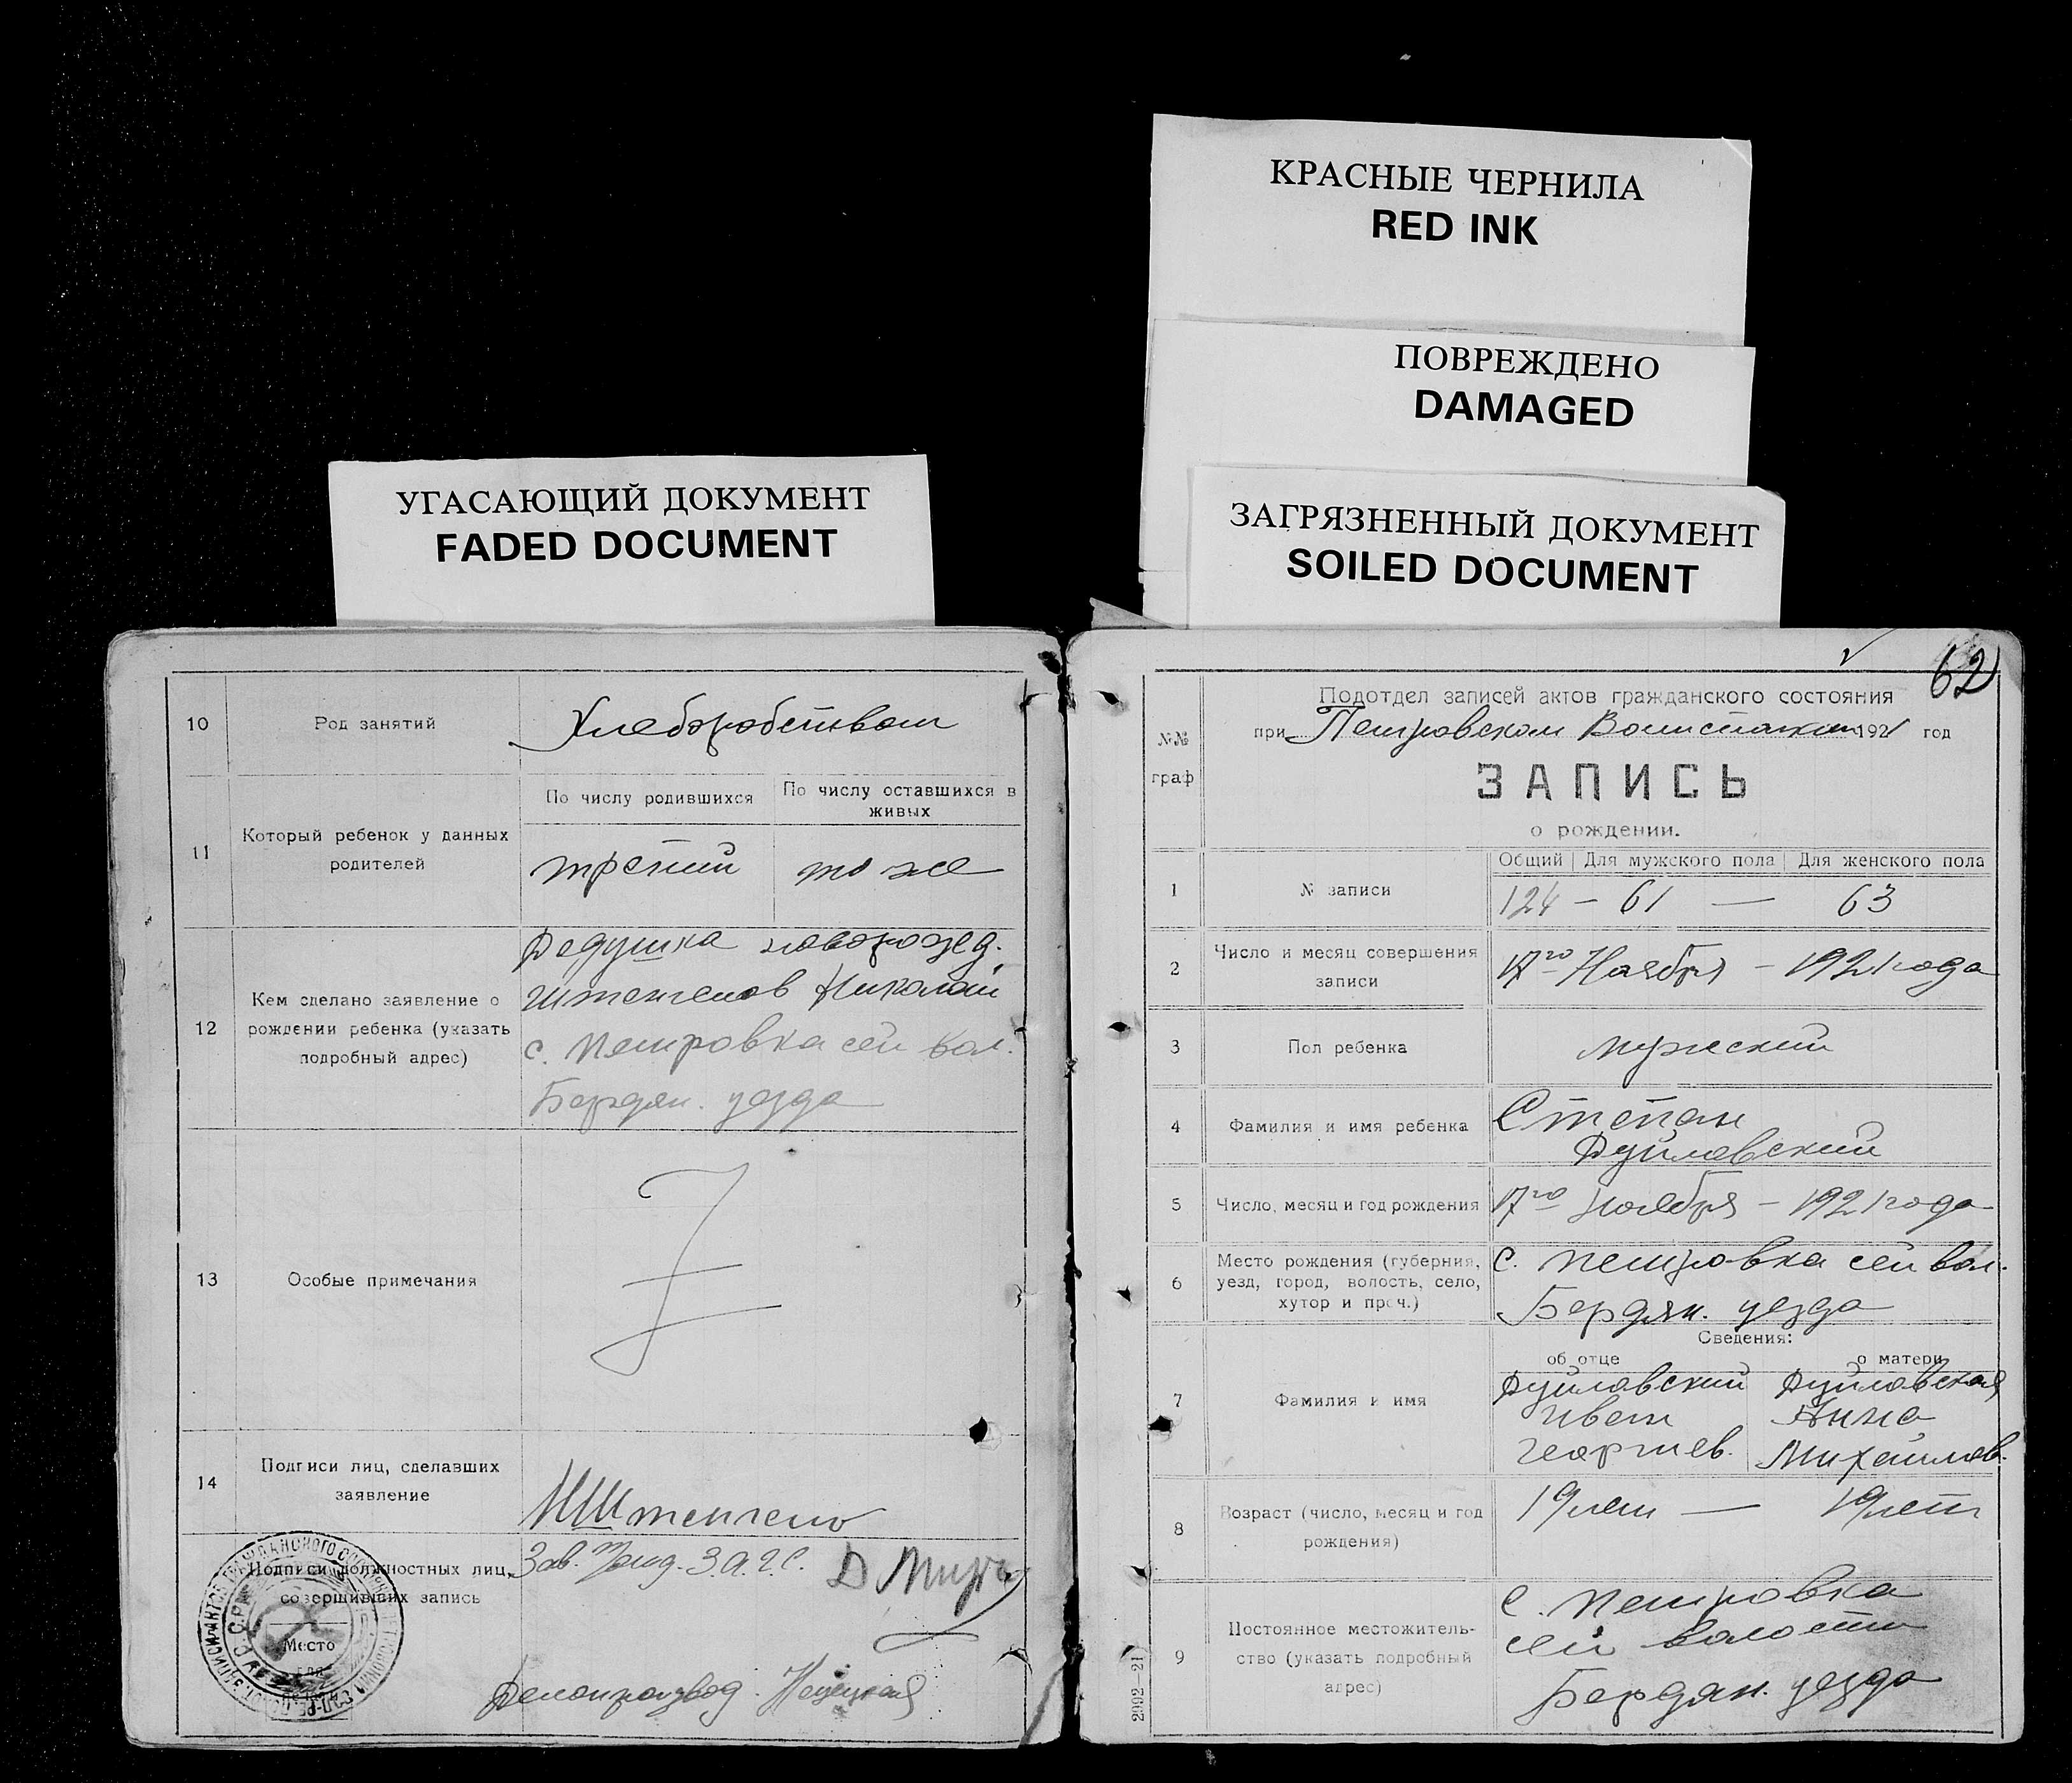 КРАСНЫЕ ЧЕРНИЛА
RED INK
ПОВРЕЖДЕНО
DAMAGED
УГАСАЮЩИЙ ДОКУМЕНТ
FADED DOCUMENT
ЗАГРЯЗНЕННЫЙ ДОКУМЕНТ
SOILED DOCUMENT
10
Род занятий
Хлеборобством
11
Который ребенок у данных
родителей
По числу родившихся
По числу оставшихся в
живых
третий
то же
12
Кем сделано заявление о
рождении ребенка (указать
подробный адрес)
Дедушка новорожд.
Николай
с. Петровка сей вол.
Бердян. уезда
13
Особые примечания
14
Подписи лиц, сделавших
заявление
Подписи должностных лиц,
совершивших запись
Место
Зав. З.А.Г.С.
Делопроизвод.
62
Подотдел записей актов гражданского состояния
при Петровском 1921 год
№№
граф
ЗАПИСЬ
о рождении.
1
№ записи
Общий
Для мужского пола
Для женского пола
124 — 61 — 63
2
Число и месяц совершения
записи
17го Ноября — 1921 года
3
Пол ребенка
мужский
4
Фамилия и имя ребенка
Степан
Дуйловский
5
Число, месяц и год рождения
17го Ноября — 1921 года
6
Место рождения (губерния,
уезд, город, волость, село,
хутор и проч.)
с. Петровка сей вол.
Бердян. уезда
Сведения:
об отце
о матери
7
Фамилия и имя
Дуйловский
Иван
Георгиев.
Дуйловская
Анна
Михайлов.
8
Возраст (число, месяц и год
рождения)
19 лет — 19 лет
9
Постоянное местожитель-
ство (указать подробный
адрес)
с. Петровка
сей волости
Бердян. уезда
2992-21